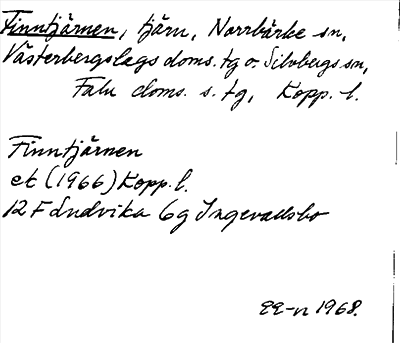 Finntjärnen, tjärn, Norrbärke sn,
Västerbergslags doms. tg o. Silvbergs sn,
Falu doms. s. tg, Kopp. l.
Finntjärnen
ek (1966) Kopp. l.
12 F Ludvika 6g Ingevallsbo
1968.